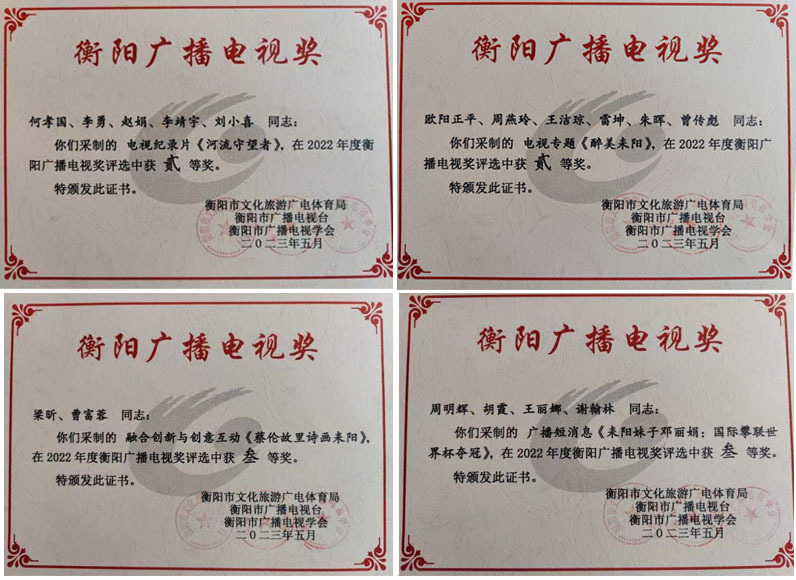 衡阳广播电视奖
何孝国、李勇、赵娟、李靖宇、刘小喜 同志：
你们采制的 电视纪录片《河流守望者》，在 2022 年度衡
阳广播电视奖评选中获 贰 等奖。
特颁发此证书。
衡阳市文化旅游广电体育局
衡阳市广播电视台
衡阳市广播电视学会
二〇二三年五月
衡阳广播电视奖
欧阳正平、周燕玲、王洁琼、雷坤、朱晖、曾传彪 同志：
你们采制的 电视专题《醉美耒阳》，在 2022 年度衡阳广
播电视奖评选中获 贰 等奖。
特颁发此证书。
衡阳市文化旅游广电体育局
衡阳市广播电视台
衡阳市广播电视学会
二〇二三年五月
衡阳广播电视奖
梁昕、曹富蓉 同志：
你们采制的 融合创新与创意互动《蔡伦故里诗画耒阳》，
在 2022 年度衡阳广播电视奖评选中获 叁 等奖。
特颁发此证书。
衡阳市文化旅游广电体育局
衡阳市广播电视台
衡阳市广播电视学会
二〇二三年五月
衡阳广播电视奖
周明辉、胡霞、王丽娜、谢翰林 同志：
你们采制的 广播短消息《耒阳妹子邓丽娟：国际攀联世
界杯夺冠》，在 2022 年度衡阳广播电视奖评选中获 叁 等奖。
特颁发此证书。
衡阳市文化旅游广电体育局
衡阳市广播电视台
衡阳市广播电视学会
二〇二三年五月